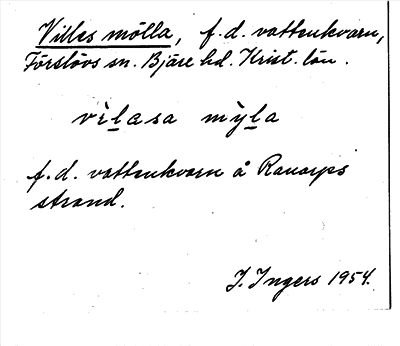 Villes mölla, f.d. vattenkvarn,
Förslövs sn. Bjäre hd. Krist. län.
vìlasa mỳla
f.d. vattenkvarn å Ranarps
strand.
I. Ingers 1954.